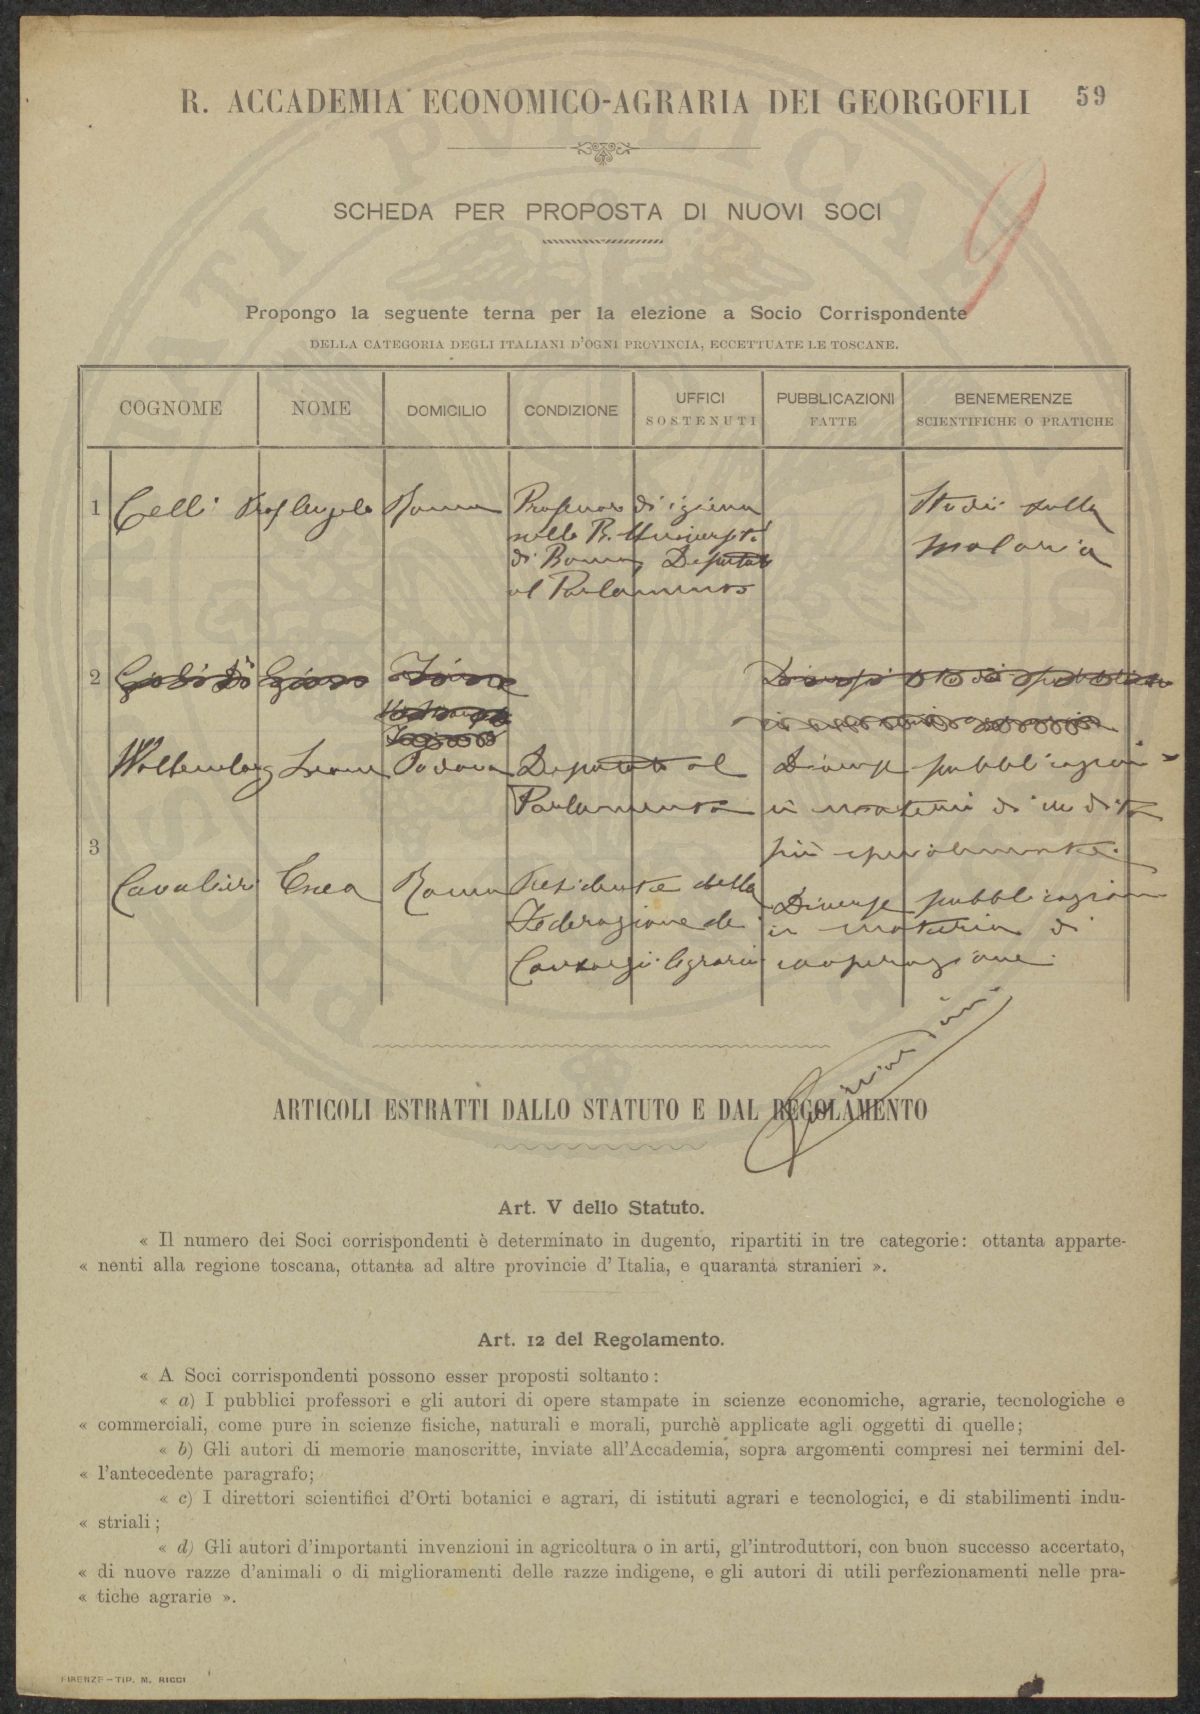 R. ACCADEMIA ECONOMICO-AGRARIA DEI GEORGOFILI
59
9
SCHEDA PER PROPOSTA DI NUOVI SOCI
Propongo la seguente terna per la elezione a Socio Corrispondente
DELLA CATEGORIA DEGLI ITALIANI D'OGNI PROVINCIA, ECCETTUATE LE TOSCANE.
COGNOME NOME DOMICILIO CONDIZIONE UFFICI SOSTENUTI PUBBLICAZIONI FATTE BENEMERENZE SCIENTIFICHE O PRATICHE
1 Celli Prof Angelo Roma Professore di igiene Studi sulla
nella R. Università malaria
di Roma, Deputato
al Parlamento
2
Wollemborg Leone Padova Deputato al Diverse pubblicazioni
Parlamento in materia di
più specialmente.
3
Cavalieri Enea Roma Presidente della Diverse pubblicazioni
Federazione dei in materia di
Consorzi Agrari cooperazione.
ARTICOLI ESTRATTI DALLO STATUTO E DAL REGOLAMENTO
Art. V dello Statuto.
« Il numero dei Soci corrispondenti è determinato in dugento, ripartiti in tre categorie: ottanta apparte-
« nenti alla regione toscana, ottanta ad altre provincie d' Italia, e quaranta stranieri ».
Art. 12 del Regolamento.
« A Soci corrispondenti possono esser proposti soltanto:
« a) I pubblici professori e gli autori di opere stampate in scienze economiche, agrarie, tecnologiche e
« commerciali, come pure in scienze fisiche, naturali e morali, purchè applicate agli oggetti di quelle;
« b) Gli autori di memorie manoscritte, inviate all'Accademia, sopra argomenti compresi nei termini del-
« l'antecedente paragrafo;
« c) I direttori scientifici d'Orti botanici e agrari, di istituti agrari e tecnologici, e di stabilimenti indu-
« striali;
« d) Gli autori d'importanti invenzioni in agricoltura o in arti, gl'introduttori, con buon successo accertato,
« di nuove razze d'animali o di miglioramenti delle razze indigene, e gli autori di utili perfezionamenti nelle pra-
« tiche agrarie ».
FIRENZE - TIP. M. RICCI